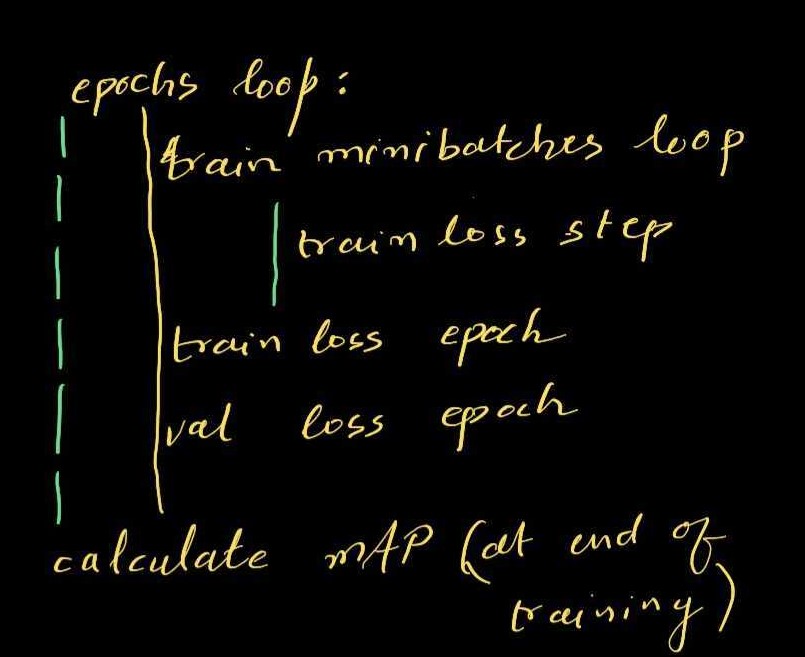 epochs loop:
train minibatches loop
train loss step
train loss epoch
val loss epoch
calculate mAP (at end of
training)